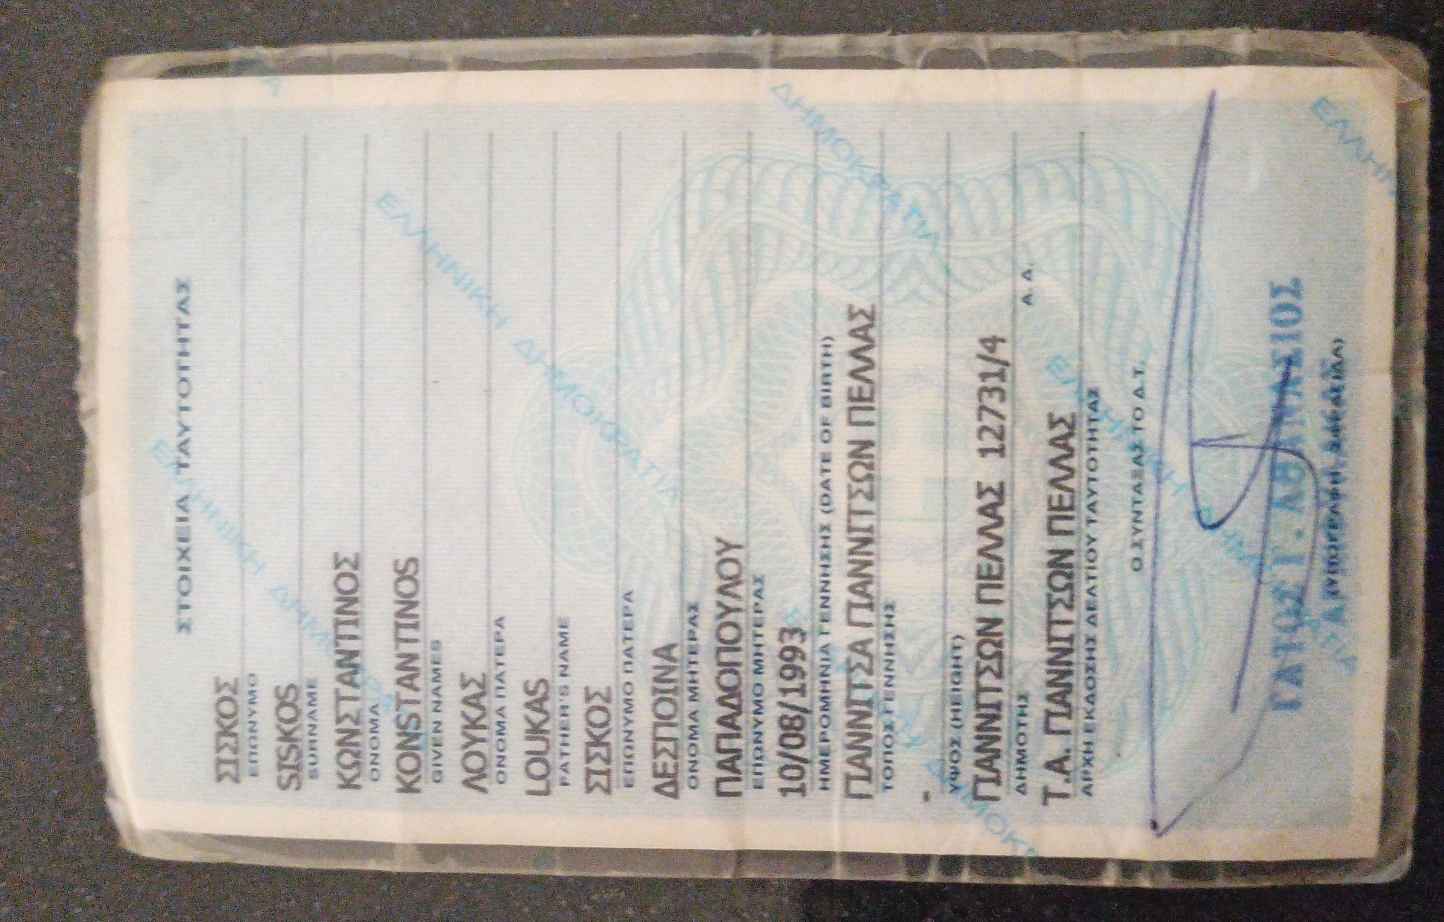 ΣΤΟΙΧΕΙΑ ΤΑΥΤΟΤΗΤΑΣ
ΣΙΣΚΟΣ
ΕΠΩΝΥΜΟ
SISKOS
SURNAME
ΚΩΝΣΤΑΝΤΙΝΟΣ
ΟΝΟΜΑ
KONSTANTINOS
GIVEN NAMES
ΛΟΥΚΑΣ
ΟΝΟΜΑ ΠΑΤΕΡΑ
LOUKAS
FATHER'S NAME
ΣΙΣΚΟΣ
ΕΠΩΝΥΜΟ ΠΑΤΕΡΑ
ΔΕΣΠΟΙΝΑ
ΟΝΟΜΑ ΜΗΤΕΡΑΣ
ΠΑΠΑΔΟΠΟΥΛΟΥ
ΕΠΩΝΥΜΟ ΜΗΤΕΡΑΣ
10/08/1993
ΗΜΕΡΟΜΗΝΙΑ ΓΕΝΝΗΣΗΣ (DATE OF BIRTH)
ΓΙΑΝΝΙΤΣΑ ΓΙΑΝΝΙΤΣΩΝ ΠΕΛΛΑΣ
ΤΟΠΟΣ ΓΕΝΝΗΣΗΣ
-
ΥΨΟΣ (HEIGHT)
ΓΙΑΝΝΙΤΣΩΝ ΠΕΛΛΑΣ 12731/4
ΔΗΜΟΤΗΣ Α. Α.
Τ.Α. ΓΙΑΝΝΙΤΣΩΝ ΠΕΛΛΑΣ
ΑΡΧΗ ΕΚΔΟΣΗΣ ΔΕΛΤΙΟΥ ΤΑΥΤΟΤΗΤΑΣ
Ο ΣΥΝΤΑΞΑΣ ΤΟ Δ.Τ.
ΑΘΑΝΑΣΙΟΣ
ΕΛΛΗΝΙΚΗ ΔΗΜΟΚΡΑΤΙΑ